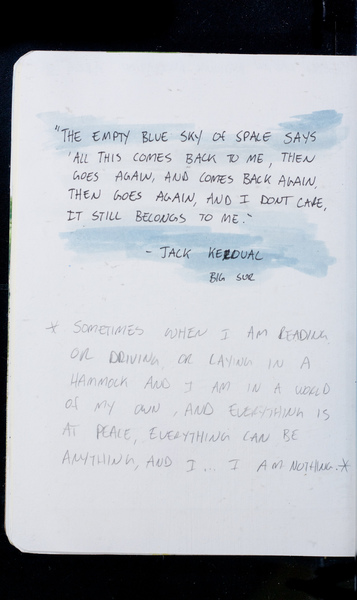 "THE EMPTY BLUE SKY OF SPACE SAYS
'ALL THIS COMES BACK TO ME, THEN
GOES AGAIN, AND COMES BACK AGAIN,
THEN GOES AGAIN, AND I DONT CARE,
IT STILL BELONGS TO ME.'"
- JACK KEROUAC
BIG SUR
* SOMETIMES WHEN I AM READING,
OR DRIVING, OR LAYING IN A
HAMMOCK AND I AM IN A WORLD
OF MY OWN, AND EVERYTHING IS
AT PEACE, EVERYTHING CAN BE
ANYTHING, AND I... I AM NOTHING.*